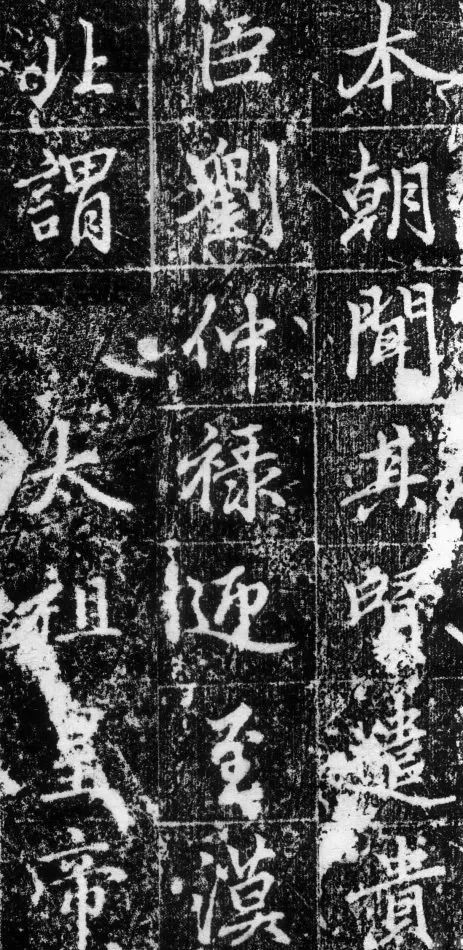 本朝聞其歸遣貴
臣劉仲祿迎至漠
北謂太祖皇帝